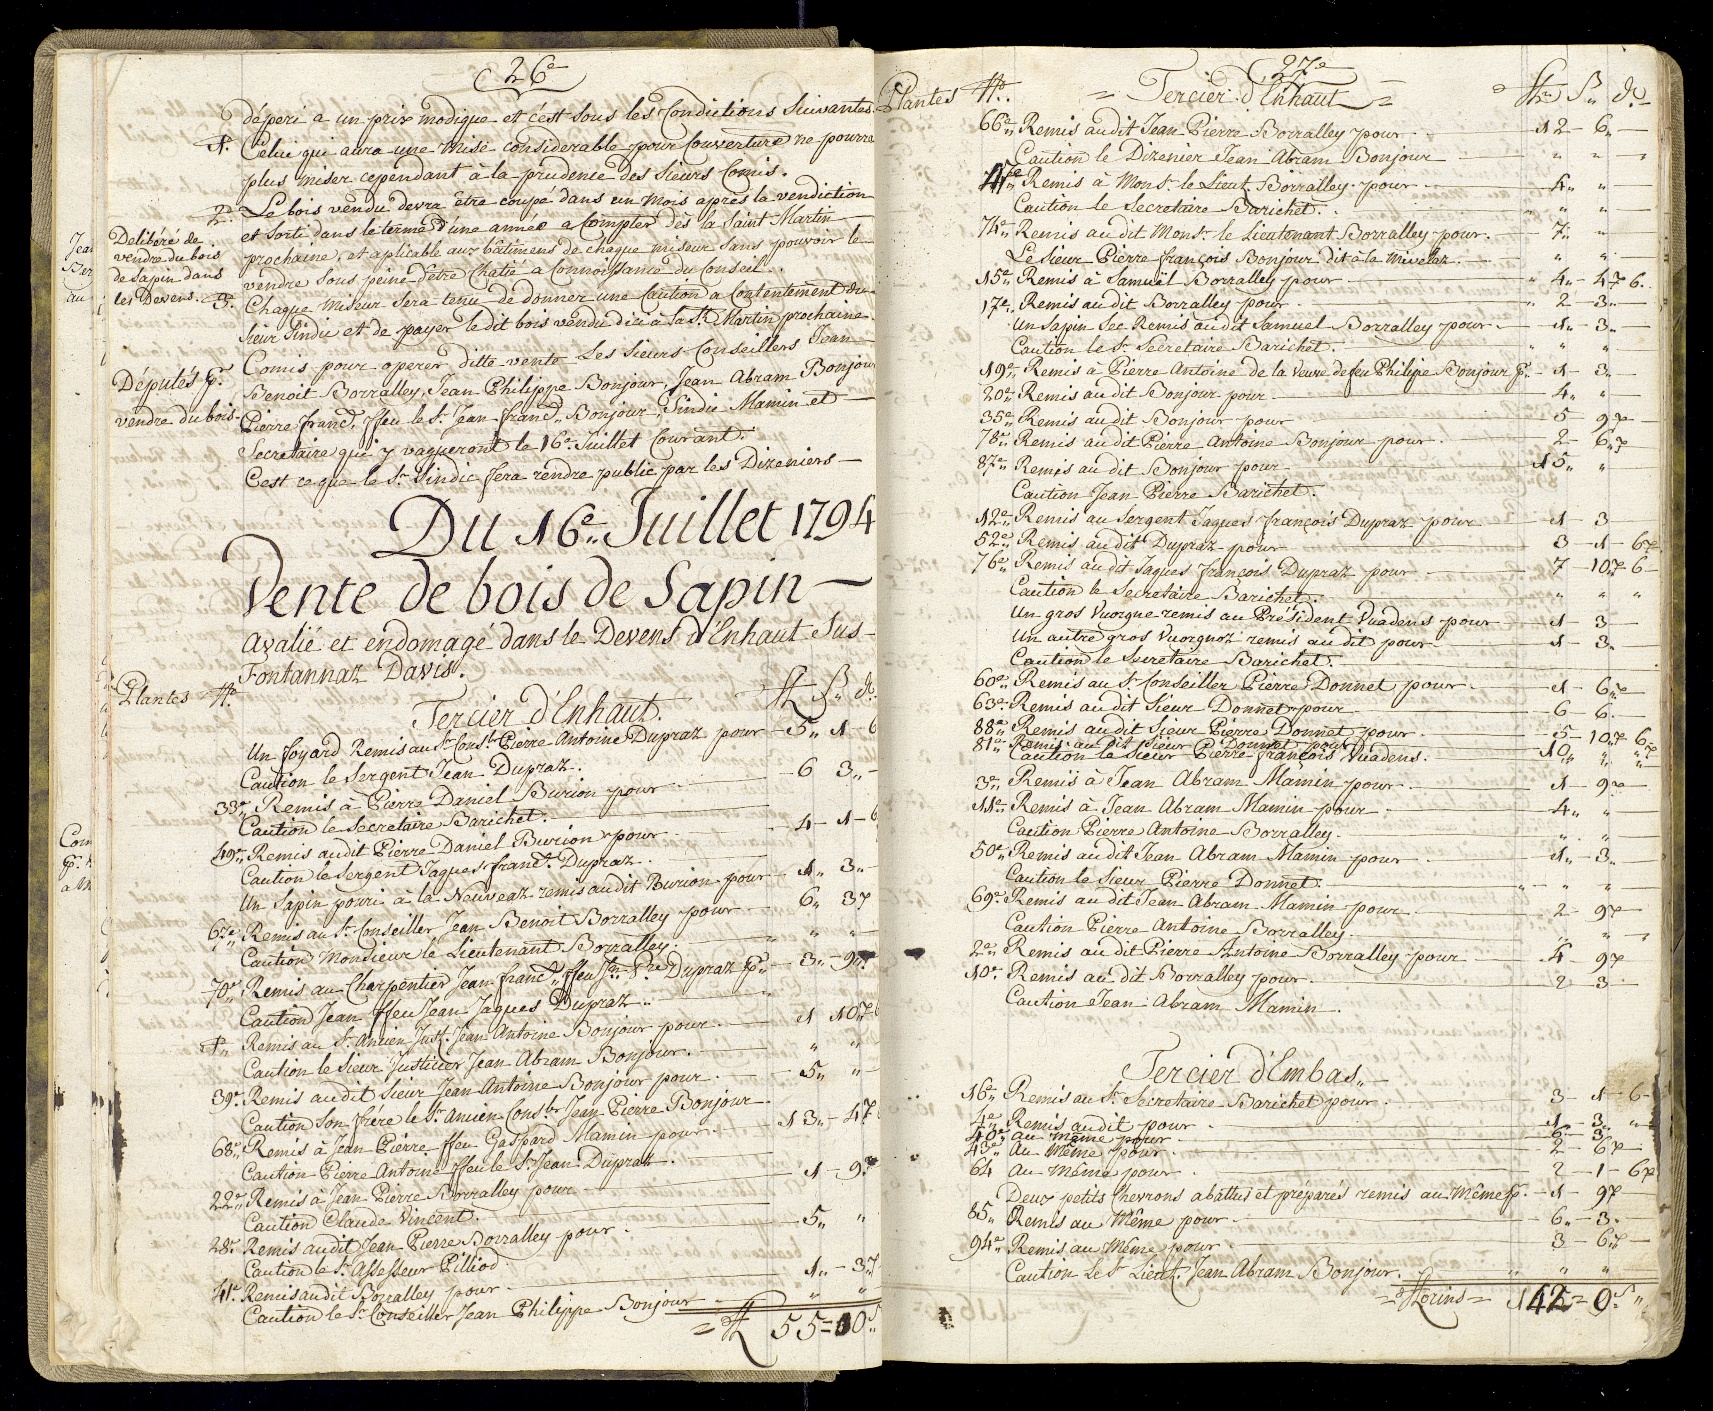 26e
dépéri a un prix modique et c'ést sous les Condictions Suivantes.
1. Celui qui aura une Mise considerable pour Couverture ne pourra
plus miser cependant à la prudence des Sieurs Comis.
2. Le bois vendu devra être coupé dans un Mois après la vendiction
et sorti dans le terme d'une année a Compter dès la Saint Martin
prochaine, et aplicable aux bâtimens de chaque miseur sans pouvoir le
vendre sous peine d'etre Chatié a Connoissance du Conseil.
3. Chaque Miseur Sera tenu de donner une Caution a Contentement du
Sieur Sindic et de payer le dit bois vendu d'ici à la St. Martin prochaine.
Comis pour operer ditte vente Les Sieurs Conseillers Jean
Benoit Borralley, Jean Philippe Bonjour, Jean Abram Bonjour
Pierre franç. ffeu le Sr. Jean franç. Bonjour, Sindic Mamin et
Secretaire qui y vaqueront le 16e. Juillet Courant.
C'est ce que le Sr. Sindic fera rendre public par les Dizeniers
Deliberé de
vendre du bois
de Sapin dans
les Devens.
Députés p.
vendre du bois
Du 16e. Juillet 1794
Vente de bois de Sapin
avalié et endomagé dans le Devens d'Enhaut Sus
Fontannaz Davis.
Plantes No.
Tercier d'Enhaut.
Un foyard Remis au Sr. Consler. Pierre Antoine Dupraz pour 5 1 6
Caution le Sergent Jean Dupraz.
33e Remis à Pierre Daniel Burion pour 6 3
Caution le Secretaire Barichet.
49e Remis audit Pierre Daniel Burion pour 4 1 6
Caution le Sergent Jaques franç. Dupraz.
Un Sapin pouri à la Neuveaz remis audit Burion pour 1 3
67e Remis au Sr. Conseiller Jean Benoit Borralley pour 6 3
Caution Monsieur le Lieutenant Borralley.
70e Remis au Charpentier Jean franç. ffeu Dupraz p. 3 9
Caution Jean ffeu Jean Jaques Dupraz.
1 Remis au Sr. Ancien Just. Jean Antoine Bonjour pour 1 10
Caution le Sieur Justicier Jean Abram Bonjour.
39e Remis audit Sieur Jean Antoine Bonjour pour 5
Caution Son frére le Sr. Ancien Consler Jean Pierre Bonjour
68e Remis à Jean Pierre ffeu Gaspard Mamin pour 13 4
Caution Pierre Antoine ffeu le Sr. Jean Dupraz.
22e Remis à Jean Pierre Borralley pour 1 9
Caution Claude Vincent.
28e Remis audit Jean Pierre Borralley pour 5
Caution le Sr. Assesseur Pilliod.
41e Remis audit Borralley pour 1 3
Caution le Sr. Conseiller Jean Philippe Bonjour
55 10
27e
Plantes No. Tercier d'Enhaut
66e Remis audit Jean Pierre Borralley pour 12 6
Caution le Dizenier Jean Abram Bonjour
Remis à Monsr. le Lieut. Borralley pour 4
Caution le Secretaire Barichet.
74e Remis audit Monsr. le Lieutenant Borralley pour 7
Le Sieur Pierre françois Bonjour dit à la Mivelaz.
15e Remis à Samuël Borralley pour 4 4 6
17e Remis audit Borralley pour 2 3
Un Sapin Sec Remis audit Samuel Borralley pour 1 3
Caution le Sr. Secretaire Barichet.
19e Remis à Pierre Antoine de la Veuve de feu Philipe Bonjour p. 1 3
20e Remis audit Bonjour pour 4
35e Remis audit Bonjour pour 5 9
78e Remis audit Pierre Antoine Bonjour pour 2 6
87e Remis audit Bonjour pour 15
Caution Jean Pierre Barichet.
12e Remis au Sergent Jaques françois Dupraz pour 1 3
52e Remis audit Dupraz pour 3 1 6
76e Remis audit Jaques françois Dupraz pour 7 10 6
Caution le Secretaire Barichet.
Un gros Vuorgne remis au Président Vuadens pour 1 3
Un autre gros Vuorgnoz remis audit pour 1 3
Caution le Secretaire Barichet.
60e Remis au Sr. Conseiller Pierre Donnet pour 1 6
63e Remis audit Sieur Donnet pour 6 6
88e Remis audit Sieur Pierre Donnet pour 5 10 6
81e Remis au dit Sieur Donnet pour 10
Caution le Sieur Pierre françois Vuadens.
3e Remis à Jean Abram Mamin pour 1 9
11e Remis à Jean Abram Mamin pour 4
Caution Pierre Antoine Borralley.
50e Remis audit Jean Abram Mamin pour 1 3
Caution le Sieur Pierre Donnet.
69e Remis audit Jean Abram Mamin pour 2 9
Caution Pierre Antoine Borralley.
2e Remis audit Pierre Antoine Borralley pour 4 9
10e Remis audit Borralley pour 2 3
Caution Jean Abram Mamin.
Tercier d'Embas
16e Remis au Sr. Secretaire Barichet pour 3 1 6
4e Remis audit pour 1 3
40e au même pour 6 3
43e Au Même pour 2 6
64 au Même pour 2 1 6
Deux petits Chevrons abattus et préparés remis au Même p. 1 9
85 Remis au Même pour 6 3
94e Remis au Même pour 3 6
Caution Le Sr. Lieut. Jean Abram Bonjour.
Florins 142 0